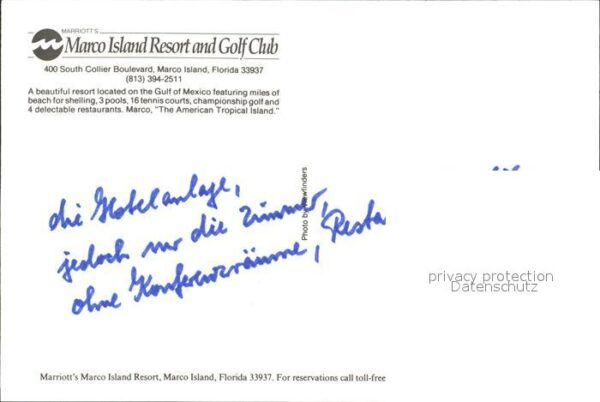 MARRIOTT'S
Marco Island Resort and Golf Club
400 South Collier Boulevard, Marco Island, Florida 33937
(813) 394-2511
A beautiful resort located on the Gulf of Mexico featuring miles of
beach for shelling, 3 pools, 16 tennis courts, championship golf and
4 delectable restaurants. Marco, "The American Tropical Island."
die Hotelanlage,
jedoch nur die Zimmer,
ohne Konferenzräume, Resta
Photo by Viewfinders
privacy protection
Datenschutz
Marriott's Marco Island Resort, Marco Island, Florida 33937. For reservations call toll-free